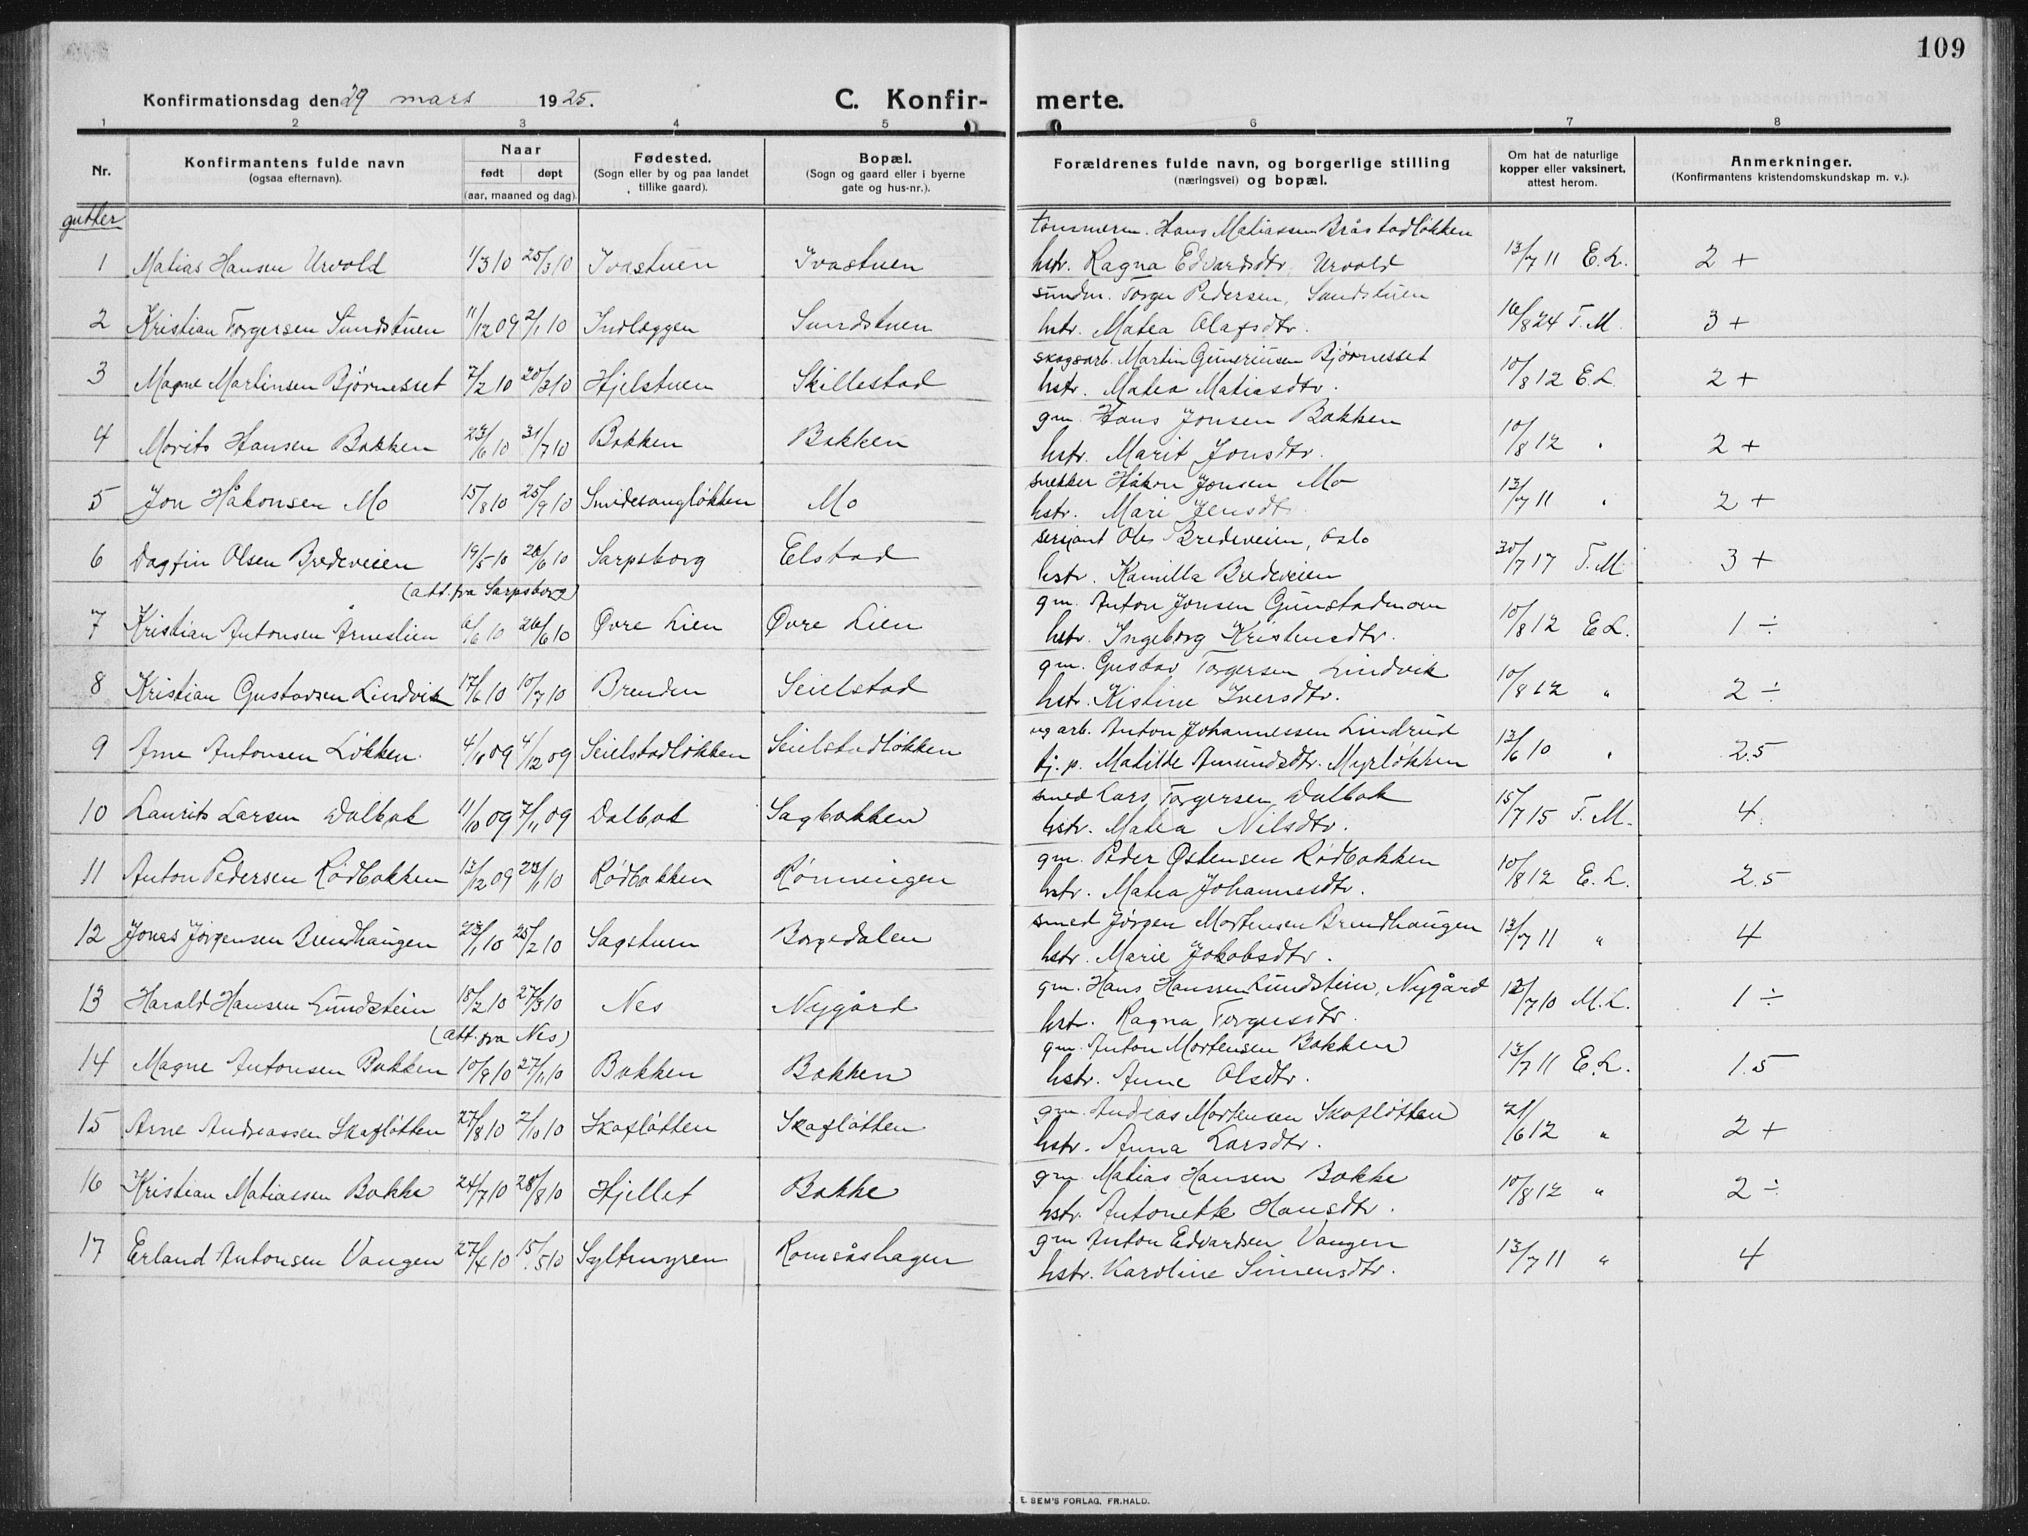 109
Konfirmationsdag den 29 mars 1925.
C. Konfir- merte.
1 2 3 4 5 6 7 8
Nr.
Konfirmantens fulde navn
(ogsaa efternavn).
Naar
født døpt
(aar, maaned og dag)
Fødested.
(Sogn eller by og paa landet
tillike gaard).
Bopæl.
(Sogn og gaard eller i byerne
gate og hus-nr.).
Forældrenes fulde navn, og borgerlige stilling
(næringsvei) og bopæl.
Om hat de naturlige
kopper eller vaksinert,
attest herom.
Anmerkninger.
(Konfirmantens kristendomskundskap m. v.).
gutter
tømmerm. Hans Matiassen Bråstadløkken
1 Matias Hansen Urvold 1/3 10 25/3 10 Ivastuen Ivastuen hstr. Ragna Edvardsdtr. Urvold 13/7 11 E.L. 2 +
Torger Pedersen, Sundstuen
2 Kristian Torgersen Sundstuen 11/12 09 2/1 10 Indlæggen Sundstuen hstr. Matea Olafsdtr. 16/8 24 T.M. 3 +
skogsarb. Martin Guneriusen Bjørnesset
3 Magne Martinsen Bjørnesset 7/2 10 20/3 10 Hjelstuen Skillestad hstr. Matea Matiasdtr. 10/8 12 E.L. 2 +
gm. Hans Jonsen Bakken
4 Morits Hansen Bakken 23/6 10 31/7 10 Bakken Bakken hstr. Marit Jonsdtr. 10/8 12 " 2 +
snekker Håkon Jensen Mo
5 Jon Håkonsen Mo 15/8 10 25/9 10 Smidesangløkken Mo hstr. Mari Jensdt. 13/7 11 " 2 +
serjant Ole Bredeveien, Oslo
6 Dagfin Olsen Bredeveien 19/5 10 26/6 10 Sarpsborg Elstad hstr. Kamilla Bredeveien 30/7 17 T.M. 3 +
(att. fra Sarpsborg)
gm. Anton Jonsen Gunstadmoen
7 Kristian Antonsen Årneslien 6/6 10 26/6 10 Øvre Lien Øvre Lien hstr. Ingeborg Kristensdtr. 10/8 12 E.L. 1 ÷
gm. Gustav Torgersen Lindvik
8 Kristian Gustavsen Lindvik 17/6 10 10/7 10 Brenden Seielstad hstr. Kistine Iversdtr. 10/8 12 " 2 ÷
ug arb. Anton Johannessen Lindrud
9 Arne Antonsen Løkken. 4/11 09 4/12 09 Seielstadløkken Seielstadløkken tj. p. Matilde Amundsdtr. Myrløkken 13/6 10 " 2.5
smed Lars Torgersen Dalbak
10 Laurits Larsen Dalbak 11/10 09 7/11 09 Dalbak Sagbakken hstr. Matea Nilsdtr. 15/7 15 T.M. 4.
gm. Peder Østensen Rødbakken
11 Anton Pedersen Rødbakken 13/12 09 23/1 10 Rødbakken Rønningen hstr. Matea Johannesdtr. 10/8 12 E.L. 2.5
smed Jørgen Mortensen Brendhaugen
12 Jonas Jørgensen Brendhaugen 23/1 10 25/2 10 Sagstuen Borgedalen hstr. Marie Jakobsdtr. 13/7 11 " 4
gm. Hans Hanssen Lundstein, Nygård
13 Harald Hansen Lundstein 18/2 10 27/3 10 Nes Nygård hstr. Ragna Torgersdtr. 12/7 10 M.L. 1 ÷
(att. fra Nes)
gm. Anton Mortensen Bakken
14 Magne Antonsen Bakken 10/9 10 27/11 10 Bakken Bakken hstr. Anne Olsdtr. 13/7 11 E.L. 1.5
gm. Andreas Mortensen Skafløtten
15 Arne Andreassen Skafløtten 27/8 10 2/10 10 Skafløtten Skafløtten hstr. Anna Larsdtr. 21/6 12 " 2 +
gm Matias Hansen Bakke
16 Kristian Matiassen Bakke 24/7 10 28/8 10 Hjellet Bakke hstr. Antonette Hansdtr. 10/8 12 " 2 ÷
gm Anton Edvardsen Vangen
17 Erland Antonsen Vangen 27/4 10 15/5 10 Syltmyren Romsåshagen hstr. Karoline Simensdtr. 13/7 11 " 4
E. SEM'S FORLAG, FR.HALD.